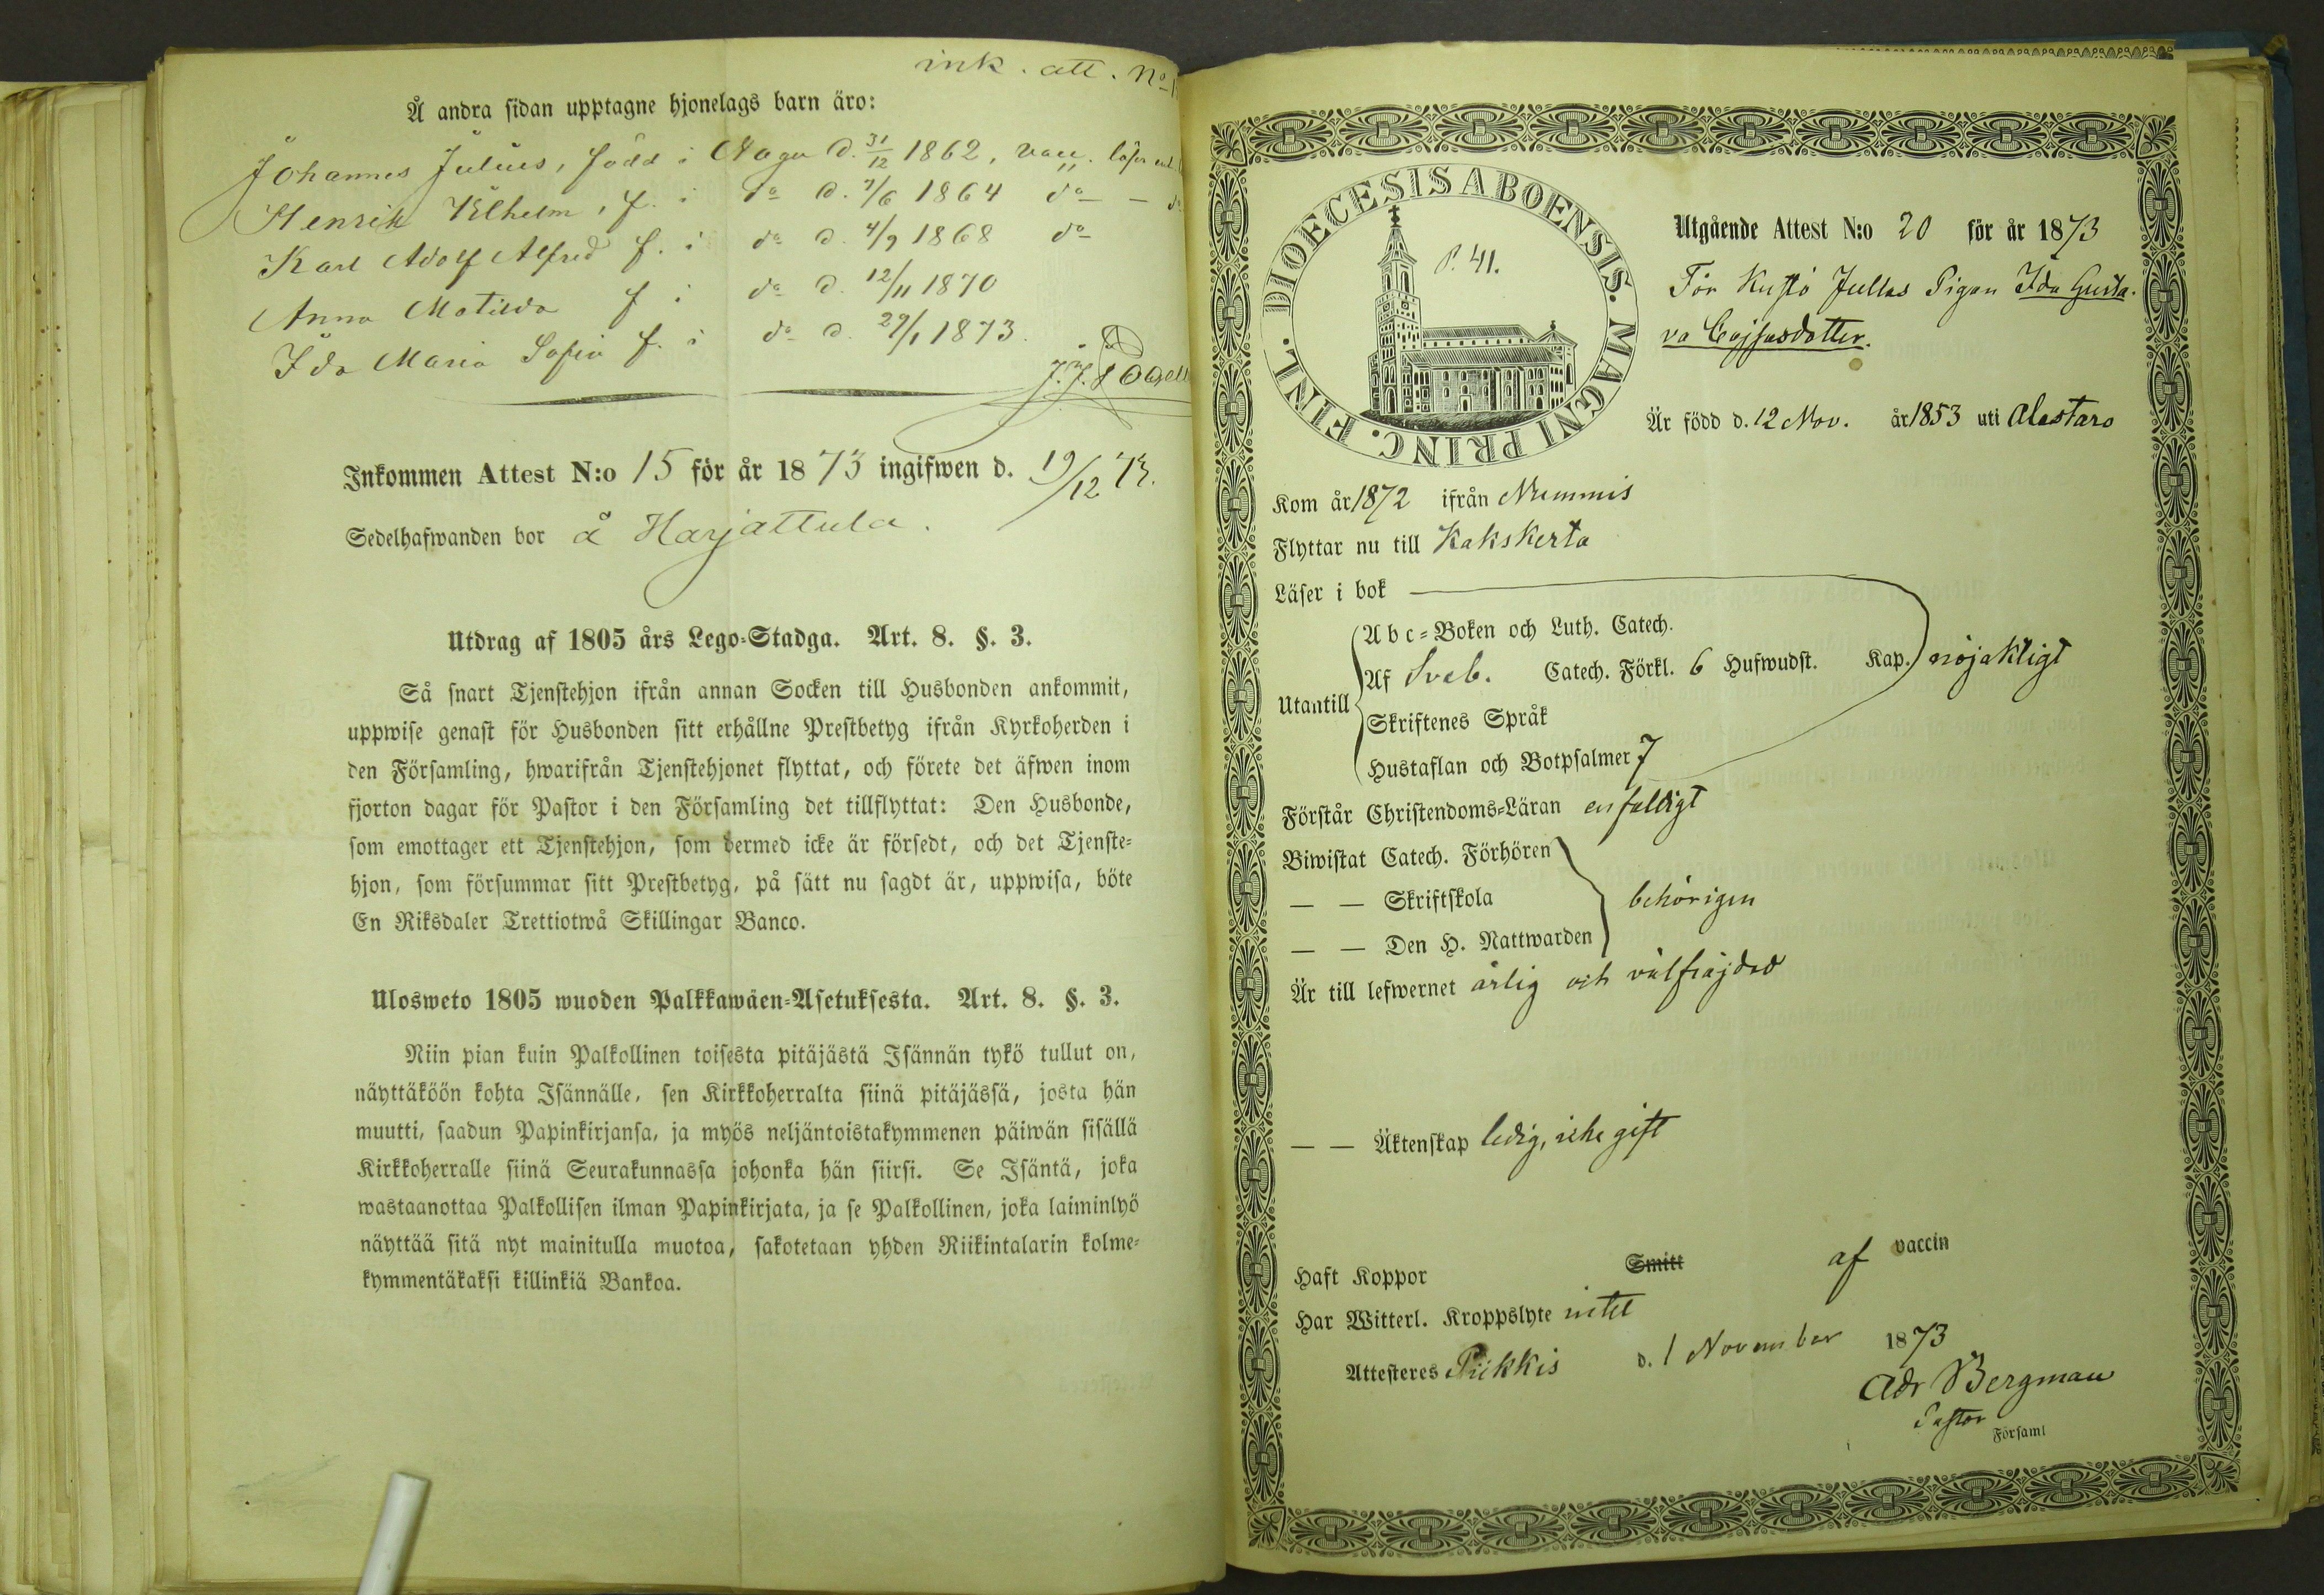 ink. att. No
Å andra sidan upptagne hjonelags barn äro:
Johannes Julius, född i Nagu d. 31/12 1862, vacc. läser
Henrik Vilhelm, f. i do d. 7/6 1864 do — do
Karl Adolf Alfred f. i do d. 4/9 1868 do
Anna Matilda f i do d. 12/11 1870
Ida Maria Sofia f. i do d. 29/1 1873.
Inkommen Attest N:o 15 för år 1873 ingifwen d. 19/12 73.
Sedelhafwanden bor å Harjattula.
Utdrag af 1805 års Lego-Stadga. Art. 8. §. 3.
Så snart Tjenstehjon ifrån annan Socken till Husbonden ankommit,
uppwise genast för Husbonden sitt erhållne Prestbetyg ifrån Kyrkoherden i
den Församling, hwarifrån Tjenstehjonet flyttat, och förete det äfwen inom
fjorton dagar för Pastor i den Församling det tillflyttat: Den Husbonde,
som emottager ett Tjenstehjon, som dermed icke är försedt, och det Tjenste-
hjon, som försummar sitt Prestbetyg, på sätt nu sagdt är, uppwisa, böte
En Riksdaler Trettiotwå Skillingar Banco.
Ulosweto 1805 wuoden Palkkawäen-Asetuksesta. Art. 8. §. 3.
Niin pian kuin Palkollinen toisesta pitäjästä Isännän tykö tullut on,
näyttäköön kohta Isännälle, sen Kirkkoherralta siinä pitäjässä, josta hän
muutti, saadun Papinkirjansa, ja myös neljäntoistakymmenen päiwän sisällä
Kirkkoherralle siinä Seurakunnassa johonka hän siirsi. Se Isäntä, joka
wastaanottaa Palkollisen ilman Papinkirjata, ja se Palkollinen, joka laiminlyö
näyttää sitä nyt mainitulla muotoa, sakotetaan yhden Riikintalarin kolme-
kymmentäkaksi killinkiä Bankoa.
DIOECESIS ABOENSIS. MAGNI PRINC. FINL.
P. 41.
Utgående Attest N:o 20 för år 1873
För Kustö Jullas Pigan Ida Gusta-
va Cajsasdotter.
Är född d. 12 Nov. år 1853 uti Alastaro
Kom år 1872 ifrån Nummis
Flyttar nu till Kakskerta
Läser i bok
Utantill
Abc-Boken och Luth. Catech.
Af Sveb. Catech. Förkl. 6 Hufwudst. Kap. nöjaktigt
Skriftenes Språk
Hustaflan och Botpsalmer 7
Förstår Christendoms-Läran enfaldigt
Biwistat Catech. Förhören
— — Skriftskola behörigen
— — Den H. Nattwarden
Är till lefwernet ärlig och välfräjdad
— — Äktenskap ledig, icke gift
Haft Koppor Smitt af vaccin
Har Witterl. Kroppslyte intet
Attesteres Piikkis d. 1 November 1873
Adr Bergman
Pastor
Församl